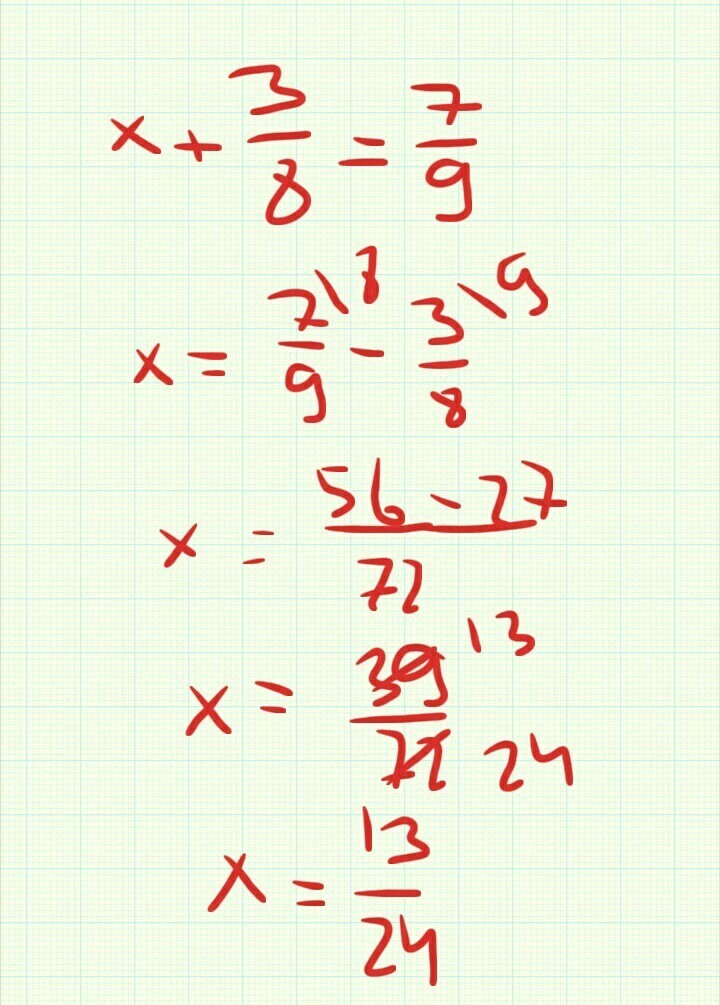 x + 3/8 = 7/9
x = 7\8/9 - 3\9/8
x = 56 - 27/72
x = 39/72 13/24
x = 13/24